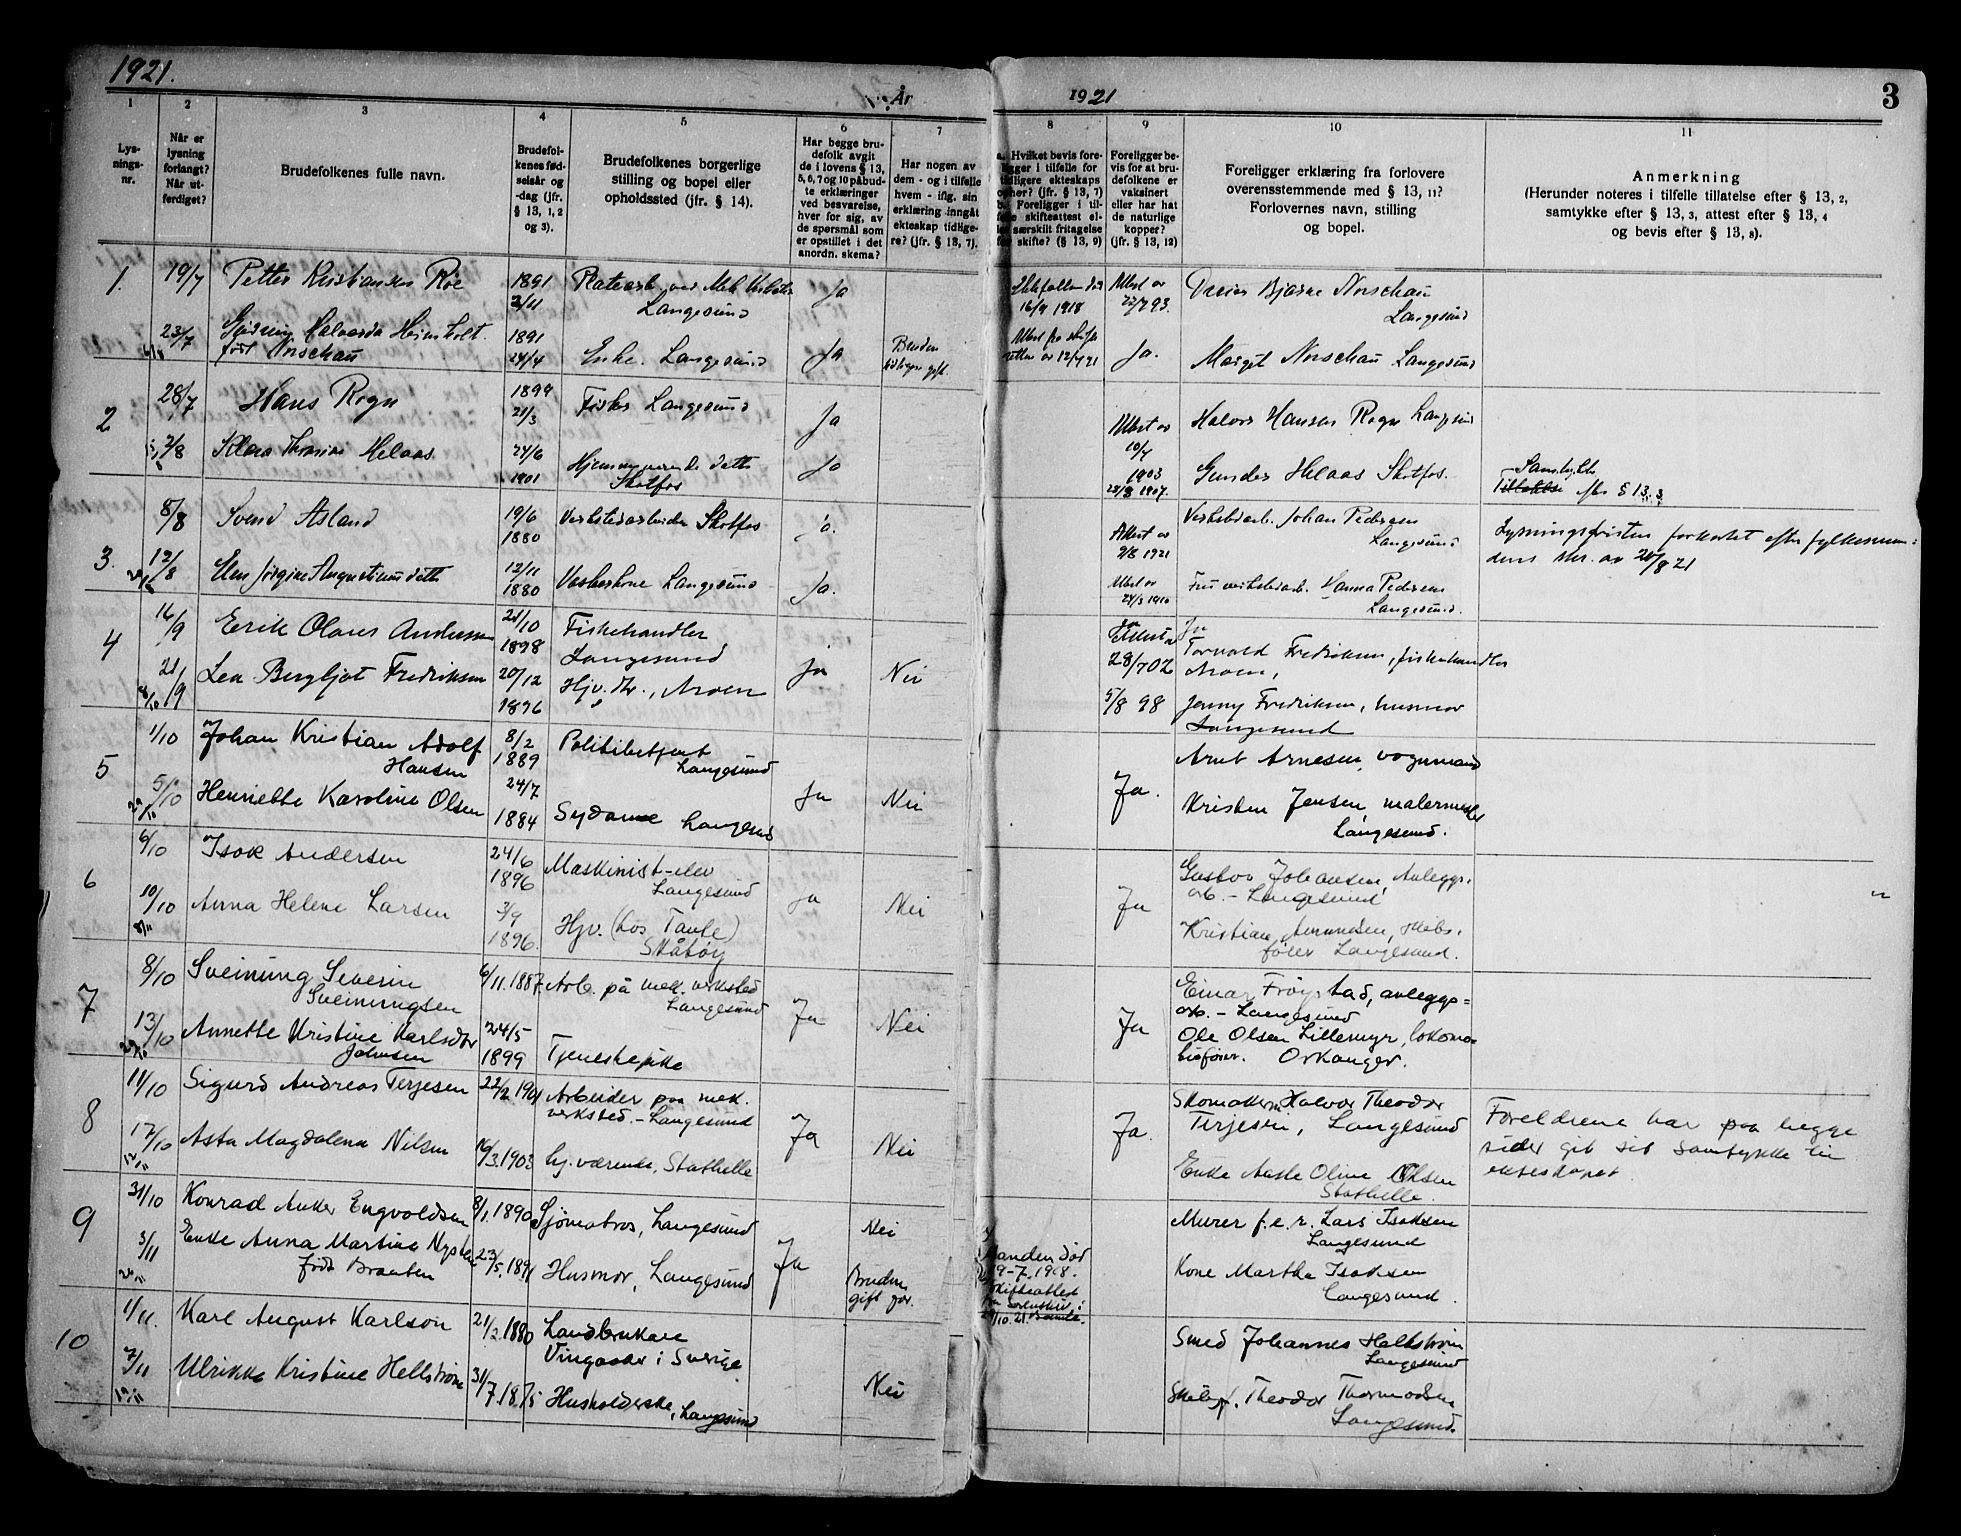 1921.
År
1921
3
1
2
3
4
5
6
7
8
9
10
11
Lys-
nings-
nr.
Når er
lysning
forlangt?
Når ut-
ferdiget?
Brudefolkenes fulle navn.
Brudefol-
kenes fød-
selsår og
-dag (jfr.
§ 13, 1, 2
og 3).
Brudefolkenes borgerlige
stilling og bopel eller
opholdssted (jfr. § 14).
Har begge bru-
defolk avgit
de i lovens § 13,
5, 6, 7 og 10 påbud-
te erklæringer
ved besvarelse,
hver for sig, av
de spørsmål som
er opstillet i det
anordn. skema?
Har nogen av
dem - og i tilfelle
hvem - iflg. sin
erklæring inngått
ekteskap tidlige-
re? (jfr. § 13, 7).
a. Hvilket bevis fore-
ligger i tilfelle for
tidligere ekteskaps
opher? (jfr. § 13, 7)
b. Foreligger i til-
felle skifteattest el-
ler særskilt fritagelse
for skifte? (§ 13, 9)
Foreligger be-
vis for at bru-
defolkene er
vaksinert
eller har hat
de naturlige
kopper?
(jfr. § 13, 12)
Foreligger erklæring fra forlovere
overensstemmende med § 13, 11?
Forlovernes navn, stilling
og bopel.
Anmerkning
(Herunder noteres i tilfelle tillatelse efter § 13, 2,
samtykke efter § 13, 3, attest efter § 13, 4
og bevis efter § 13, 8).
1.
19/7 Petter Kristiansen Roe 1891 Platearb. ved Mek Verksted Ja 16/9 1918 Attest av Darius Bjarne Norschau
2/11 Langesund 22/7 93. Langesund
23/7 Halvarda Heimholt 1891 Ja Bruden Attest fra skifte-
6/8 født Norschau 24/4 Enke. Langesund tidligere gift. retten av 12/7 21 Ja. Margit Norschau Langesund
2
28/7 Hans Rogn 1899 Fisker Langesund Ja Attest av Halvor Hansen Rogn Langesund
21/3 10/7
2/8 Klara Thomine Helaas 24/6 Hjemmeværende datter Ja 1903 Gunder Helaas Skotfos. Samtykke
1901 Skotfos 28/8 1907. Tillatelse efter § 13, 3
3.
8/8 Svend Åsland 19/6 Verkstedarbeider Skotfos Ja. Attest av Verkstedarb. Johan Pedersen Lysningsfristen forkortet efter fylkesman-
1880 9/8 1921 Langesund dens skr. av 20/8 21
12/8 Elen Jørgine Augustinusdatter 12/11 Vaskerkone Langesund Ja. Attest av Fru verkstedarb. Hanna Pedersen
1880 24/3 1910 Langesund.
4
16/9 Erik Olaus Andersen 21/10 Fiskehandler Attest av Ja
1898 Langesund Ja Nei 28/7 02 Torvald Fredriksen, fiskehandler
21/9 Lea Bergljot Fredriksen 20/12 Hjv. dtr., Aroen Aroen,
8/10 1896 5/8 98 Jenny Fredriksen, husmor
Langesund
5
1/10 Johan Kristian Adolf 8/2 Politibetjent Arnt Arnesen, vognmand
Hansen 1889 Langesund Ja Nei Ja.
5/10 Henriette Karoline Olsen 24/7 Sydame Langesund Kristen Jensen, malermester
1884 Langesund.
6
6/10 Isak Andersen 24/6 Maskinist-elev Gustav Johansen, Anleggs.
1896 Langesund Ja Nei Ja arb. - Langesund
10/10 Anna Helene Larsen 3/9 Hjv. (hos Tante) Kristian Amundsen, Skibs.
8/11 1896. Skåtøy fører Langesund.
7
8/10 Sveinung Severin 6/11. 1887. Arb. på mek. verksted Einar Frøystad, anleggs-
Sveinungsen Langesund Ja Nei Ja arb. - Langesund
13/10 Annette Kristine Karlsdtr 24/5 Ole Olsen Lillemyr, lokomo-
Johnsen 1899 Tjenestepike tivfører. Orkanger.
8
11/10 Sigurd Andreas Terjesen 22/2 1901 Arbeider paa mek. Skomakerm Halvor Theodor Foreldrene har paa begge
verksted. - Langesund Ja Nei Ja. Terjesen, Langesund sider git sit samtykke til
17/10 Asta Magdalena Nilsen 16/3. 1903 hj. værende, Stathelle Enke Aaste Oline Olsen ekteskapet.
12/11 Stathelle.
9
31/10 Konrad Anker Engvoldsen 8/1. 1890 Sjømatros, Langesund Ja Nei Murer f.e.r. Lars Isaksen
Langesund
3/11 Enke Anna Martine 23/5. 1891 Husmor, Langesund Bruden Manden død Kone Martha Isaksen
født Braaten gift før. 9-7. 1918. Langesund.
Skifteattest
fra Sorenskriv. i
29/10. 21 Bamle.
10
1/11. Karl August Karlson 21/2. 1880 Landbrukare Smed Johannes Hellstrøm
Vingaaker i Sverige. Nei Langesund
7/11 Ulrikke Kristine Hellstrøm 31/7. 1875 Husholderske, Langesund Skibsf. Theodor Thormodsen
19/11 Langesund.